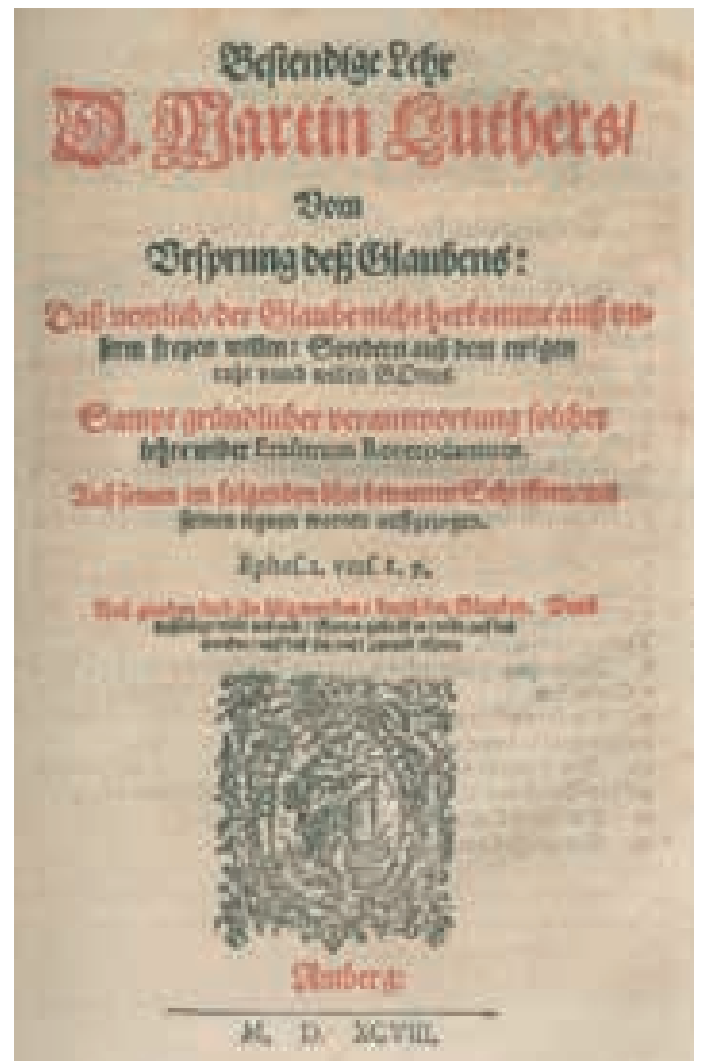 Bestendige Lehr
D. Martin Luthers/
Vom
Vrsprung deß Glaubens:
Daß nemlich/der Glaube nicht herkomme auß vn-
serm freyen willen: Sondern auß dem ewigen
raht vnnd willen GOttes
Sampt gründlicher verantwortung solcher
lehre wider Erasmum Roterodamum.
Auß seinen im folgenden Schrifften mit
seinen eignen worten außgezogen.
Ephes. 2. vers. 8. 9.
Auß durch den Glauben. Vnd
Amberg:
M. D. XCVIII.